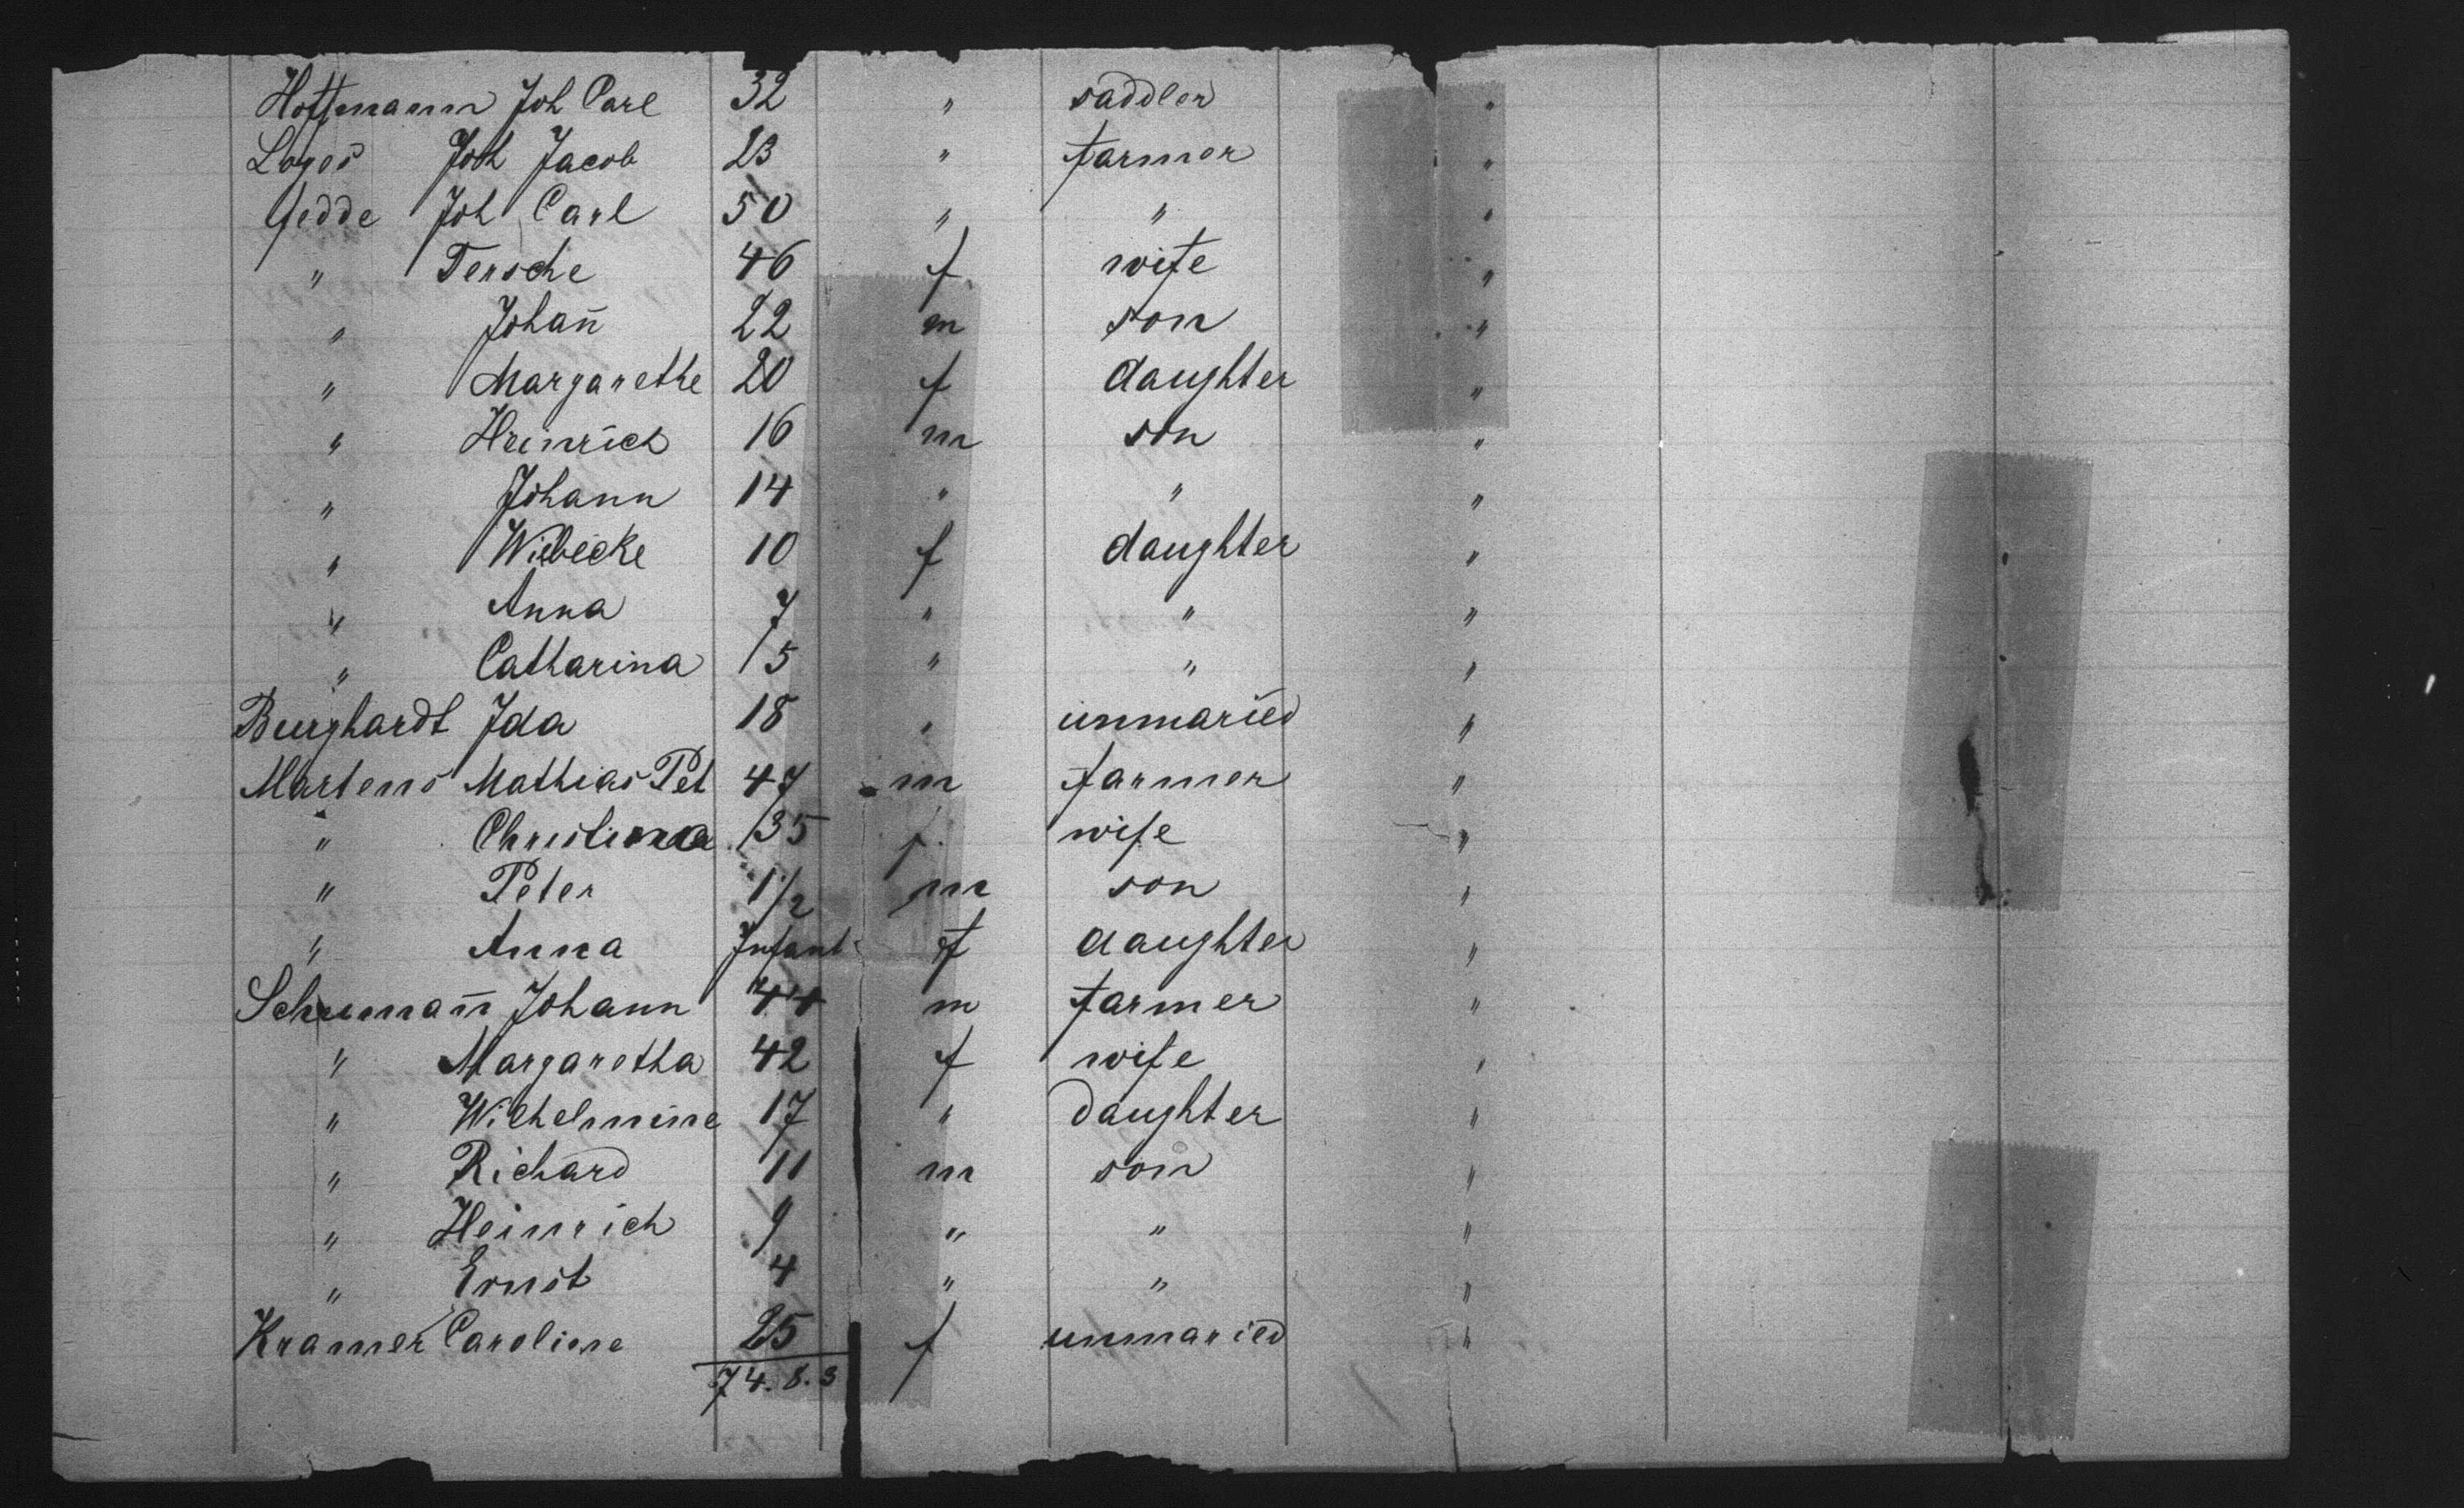 Hoffmann Joh Carl 32 " saddler "
Loges Joh Jacob 23 " farmer "
Gedde Joh Carl 50 " " "
" Tersche 46 f wife "
" Johan̄ 22 m son "
" Margarethe 20 f daughter "
" Heinrich 16 m son "
" Johann 14 " " "
" Wiebecke 10 f daughter "
" Anna 7 " " "
" Catharina 5 " " "
Burghardt Ida 18 " unmaried "
Martens Mathias Pet 47 m farmer "
" Christina 35 f wife "
" Peter 1 1/2 m son "
" Anna Infant f daughter "
Schuman̄ Johann 44 m farmer "
" Margaretha 42 f wife "
" Wilhelmine 17 " daughter "
" Richard 11 m son "
" Heinrich 9 " " "
" Ernst 4 " " "
Kramer Caroline 25 f unmaried "
74. 8. 3